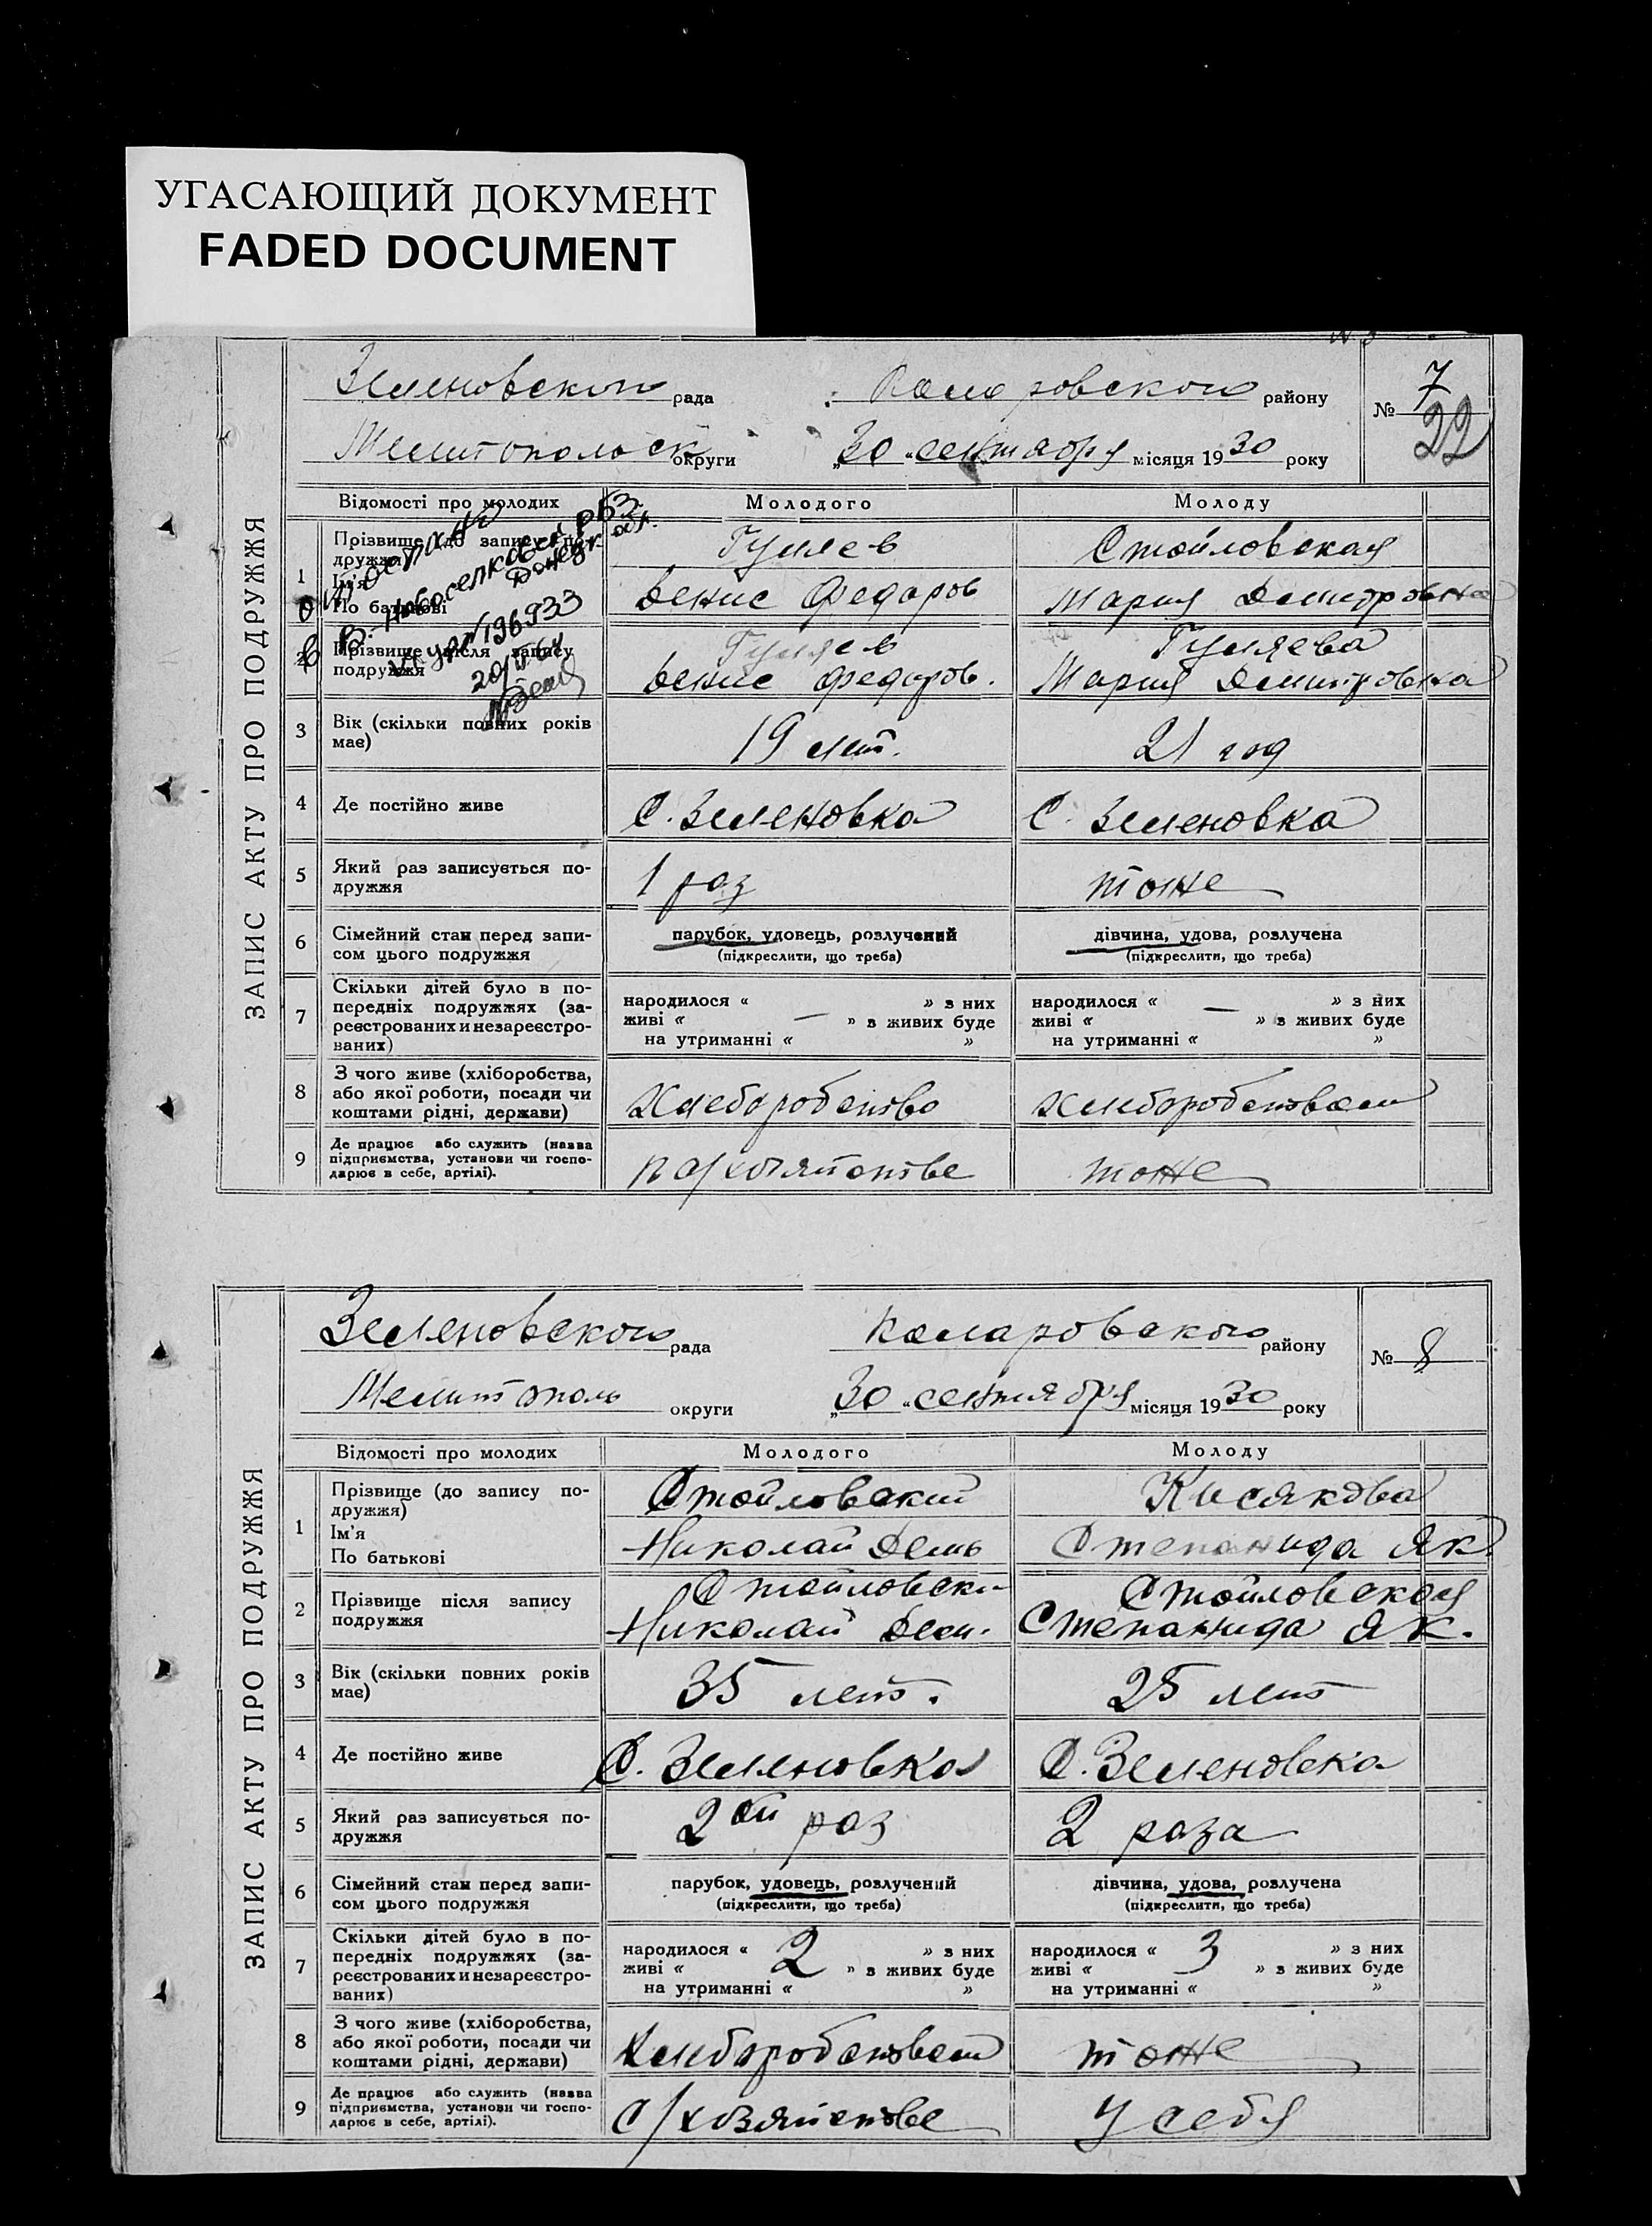 УГАСАЮЩИЙ ДОКУМЕНТ
FADED DOCUMENT
ЗАПИС АКТУ ПРО ПОДРУЖЖЯ
Зеленовского рада Коларовского району № 7
22
Мелитопольск округи „30 “ сентября місяця 1930 року
Відомості про молодих Молодого Молоду
1 Прізвище (до запису по-
дружжя) Гуляев Стойловская
Ім'я
По батькові Денис Федоров Мария Дмитровна
2 Прізвище після запису
подружжя
Гуляев Гуляева
Денис Федоров. Мария Дмитровна
В.-Новоселковск. рбз.
№196933
3 Вік (скільки повних років
має) 19 лет. 21 год
4 Де постійно живе С. Зеленовка С. Зеленовка
5 Який раз записується по-
дружжя 1 раз тоже
6 Сімейний стан перед запи-
сом цього подружжя
парубок, удовець, розлучений дівчина, удова, розлучена
(підкреслити, що треба) (підкреслити, що треба)
7 Скільки дітей було в по-
передніх подружжях (за-
реєстрованих и незареєстро-
ваних)
народилося « — » з них народилося « — » з них
живі « » з живих буде живі « » з живих буде
на утриманні « » на утриманні « »
8 З чого живе (хліборобства,
або якої роботи, посади чи
коштами рідні, держави) Хлеборобство хлеборобством
9 Де працює або служить (назва
підприємства, установи чи госпо-
дарює в себе, артілі). хозяйстве тоже
ЗАПИС АКТУ ПРО ПОДРУЖЖЯ
Зеленовского рада Коларовского району № 8
Мелитополь округи „30 “ сентября місяця 1930 року
Відомості про молодих Молодого Молоду
1 Прізвище (до запису по-
дружжя) Стойловский Кисякова
Ім'я
По батькові Николай Дем Степанида Як.
2 Прізвище після запису
подружжя
Стойловски Стойловская
Николай Дем. Степанида Як.
3 Вік (скільки повних років
має) 35 лет. 25 лет
4 Де постійно живе С. Зеленовка С. Зеленовка
5 Який раз записується по-
дружжя 2ой раз 2 раза
6 Сімейний стан перед запи-
сом цього подружжя
парубок, удовець, розлучений дівчина, удова, розлучена
(підкреслити, що треба) (підкреслити, що треба)
7 Скільки дітей було в по-
передніх подружжях (за-
реєстрованих и незареєстро-
ваних)
народилося « 2 » з них народилося « 3 » з них
живі « » з живих буде живі « » з живих буде
на утриманні « » на утриманні « »
8 З чого живе (хліборобства,
або якої роботи, посади чи
коштами рідні, держави) Хлеборобством тоже
9 Де працює або служить (назва
підприємства, установи чи госпо-
дарює в себе, артілі). с/хозяйстве У себя